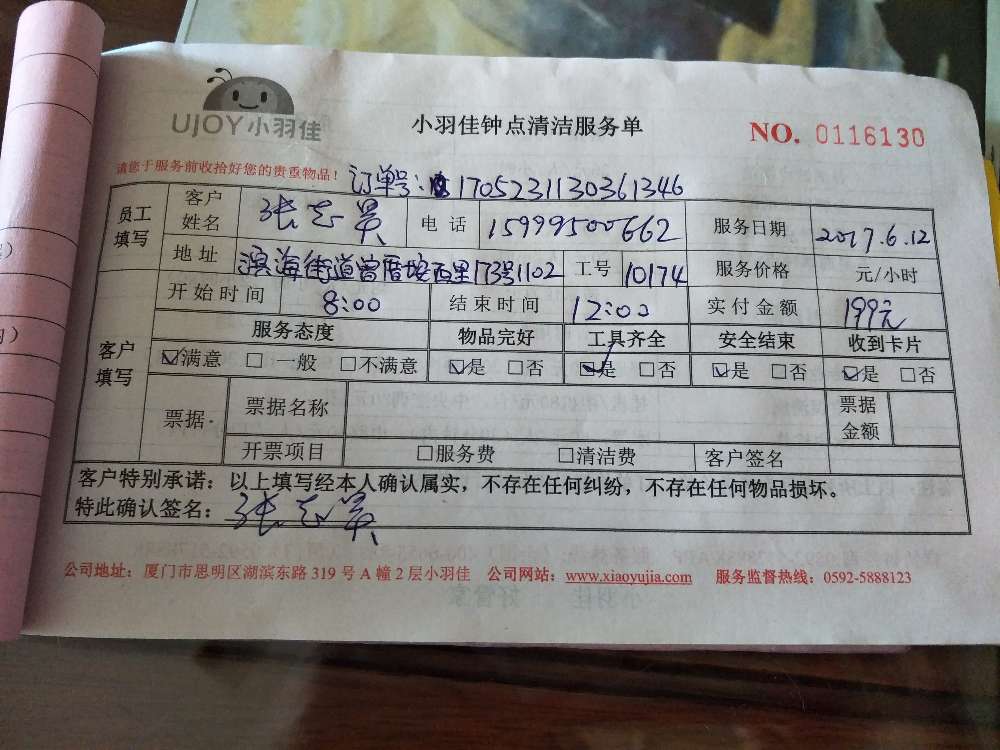 UJOY小羽佳
小羽佳钟点清洁服务单
NO. 0116130
请您于服务前收拾好您的贵重物品！
订单号：1705231130361346
员工填写 客户姓名 张志昊 电话 15999500662 服务日期 2017.6.12
地址 滨海街道曾厝垵西里173号1102 工号 10174 服务价格 元/小时
开始时间 8:00 结束时间 12:00 实付金额 199元
客户填写 服务态度 物品完好 工具齐全 安全结束 收到卡片
☑满意 □一般 □不满意 ☑是 □否 ☑是 □否 ☑是 □否 ☑是 □否
票据 票据名称 票据金额
开票项目 □服务费 □清洁费 客户签名
客户特别承诺：以上填写经本人确认属实，不存在任何纠纷，不存在任何物品损坏。
特此确认签名：张志昊
公司地址：厦门市思明区湖滨东路 319 号 A 幢 2 层小羽佳 公司网站：www.xiaoyujia.com 服务监督热线：0592-5888123